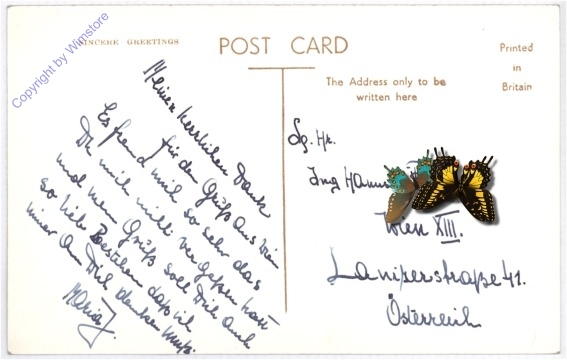 Copyright by Wimstore
SINCERE GREETINGS
POST CARD
Printed
in
Britain
The Address only to be
written here
Meinen herzlichen Dank
für den Gruß aus Wien
Es freud mich so sehr das
Du mich nicht vergeßen hast
und mein Gruß soll Dich auch
so liebe Bestellen daß ich
immer an Dich denken muß.
Maria
Sg. Hr.
Ing
Wien XIII.
Lainzerstraße 41.
Österreich